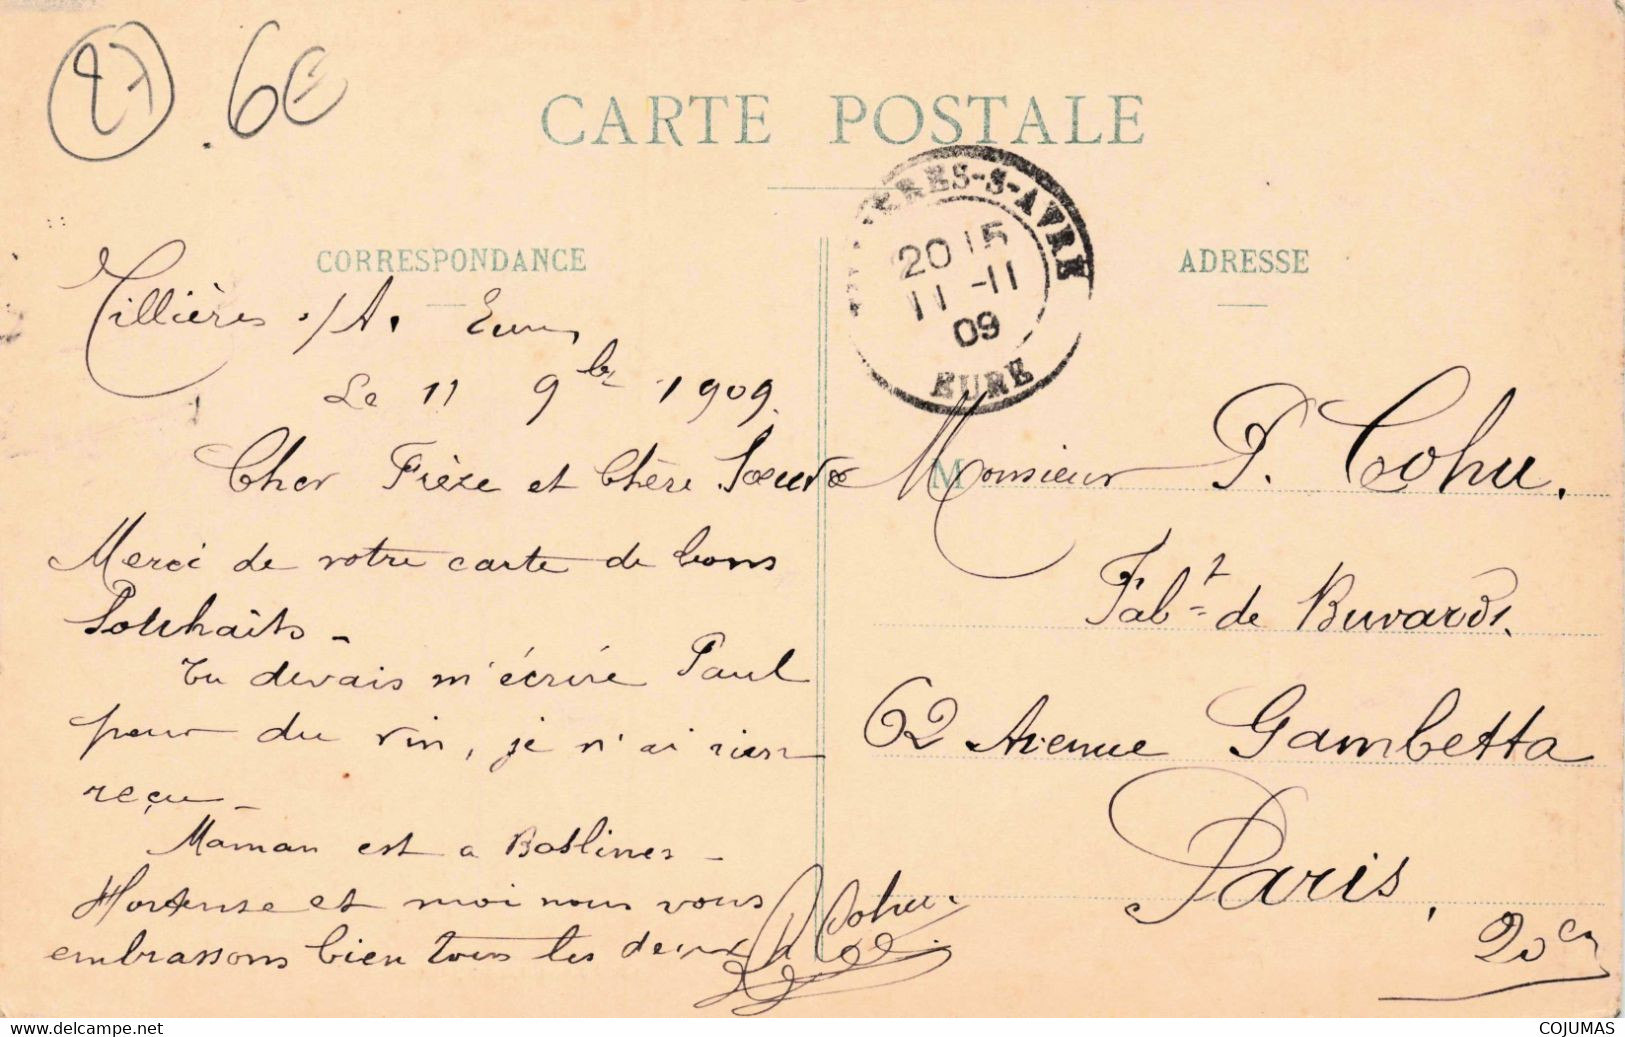 27 .6€
CARTE POSTALE
CORRESPONDANCE
ADRESSE
RES-S-AVRE
20 15
11 -11
09
EURE
Tillières s/A. Eure,
Le 11 9bre 1909.
Cher Frère et Chère Soeur
Merci de votre carte de bons
Souhaits -
Tu devais m'écrire Paul
pour du vin, je n'ai rien
reçu -
Maman est a -
Hortense et moi nous vous
embrassons bien tous les deux
Cohu.
M
Monsieur P. Cohu.
Fabt de Buvards.
62 Avenue Gambetta
Paris.
20e
COJUMAS
delcampe.net